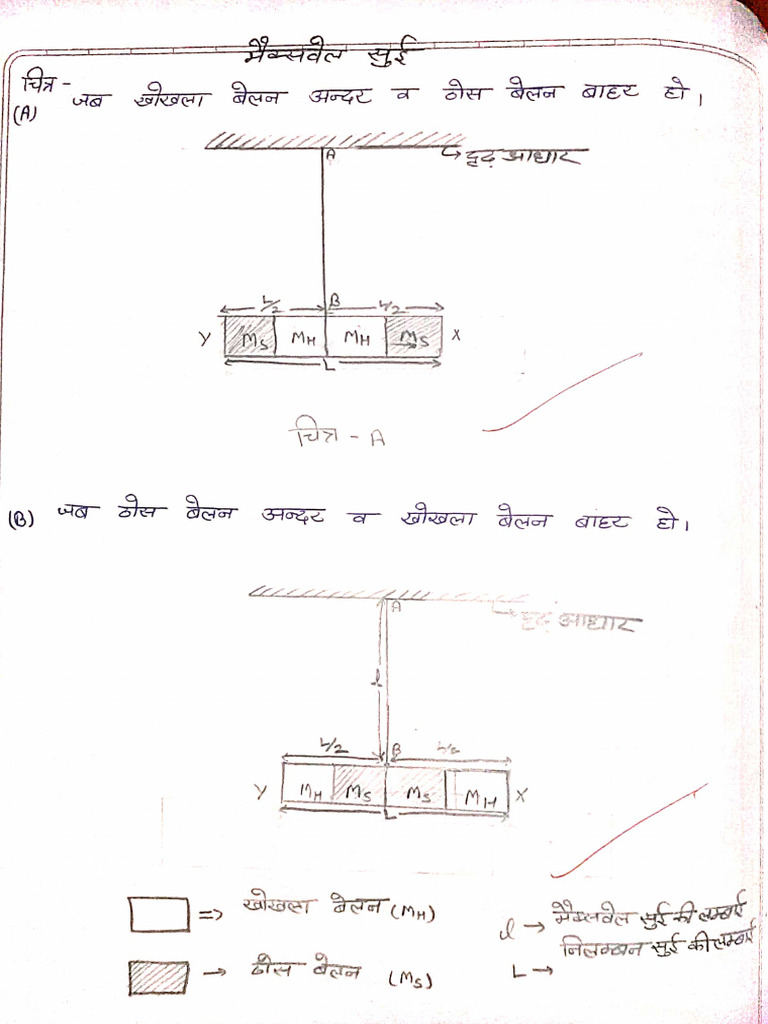 मैक्सवेल सुई
चित्र -
(A) जब खोखला बेलन अन्दर व ठोस बेलन बाहर हो।
A
→ दृढ़ आधार
L/2 B L/2
Y MS MH MH MS X
L
चित्र - A
(B) जब ठोस बेलन अन्दर व खोखला बेलन बाहर हो।
A
→ दृढ़ आधार
l
L/2 B L/2
Y MH MS MS MH X
L
=> खोखला बेलन (MH)
→ ठोस बेलन (MS)
l → मैक्सवेल सुई की लम्बाई
निलम्बन सुई की लम्बाई
L →